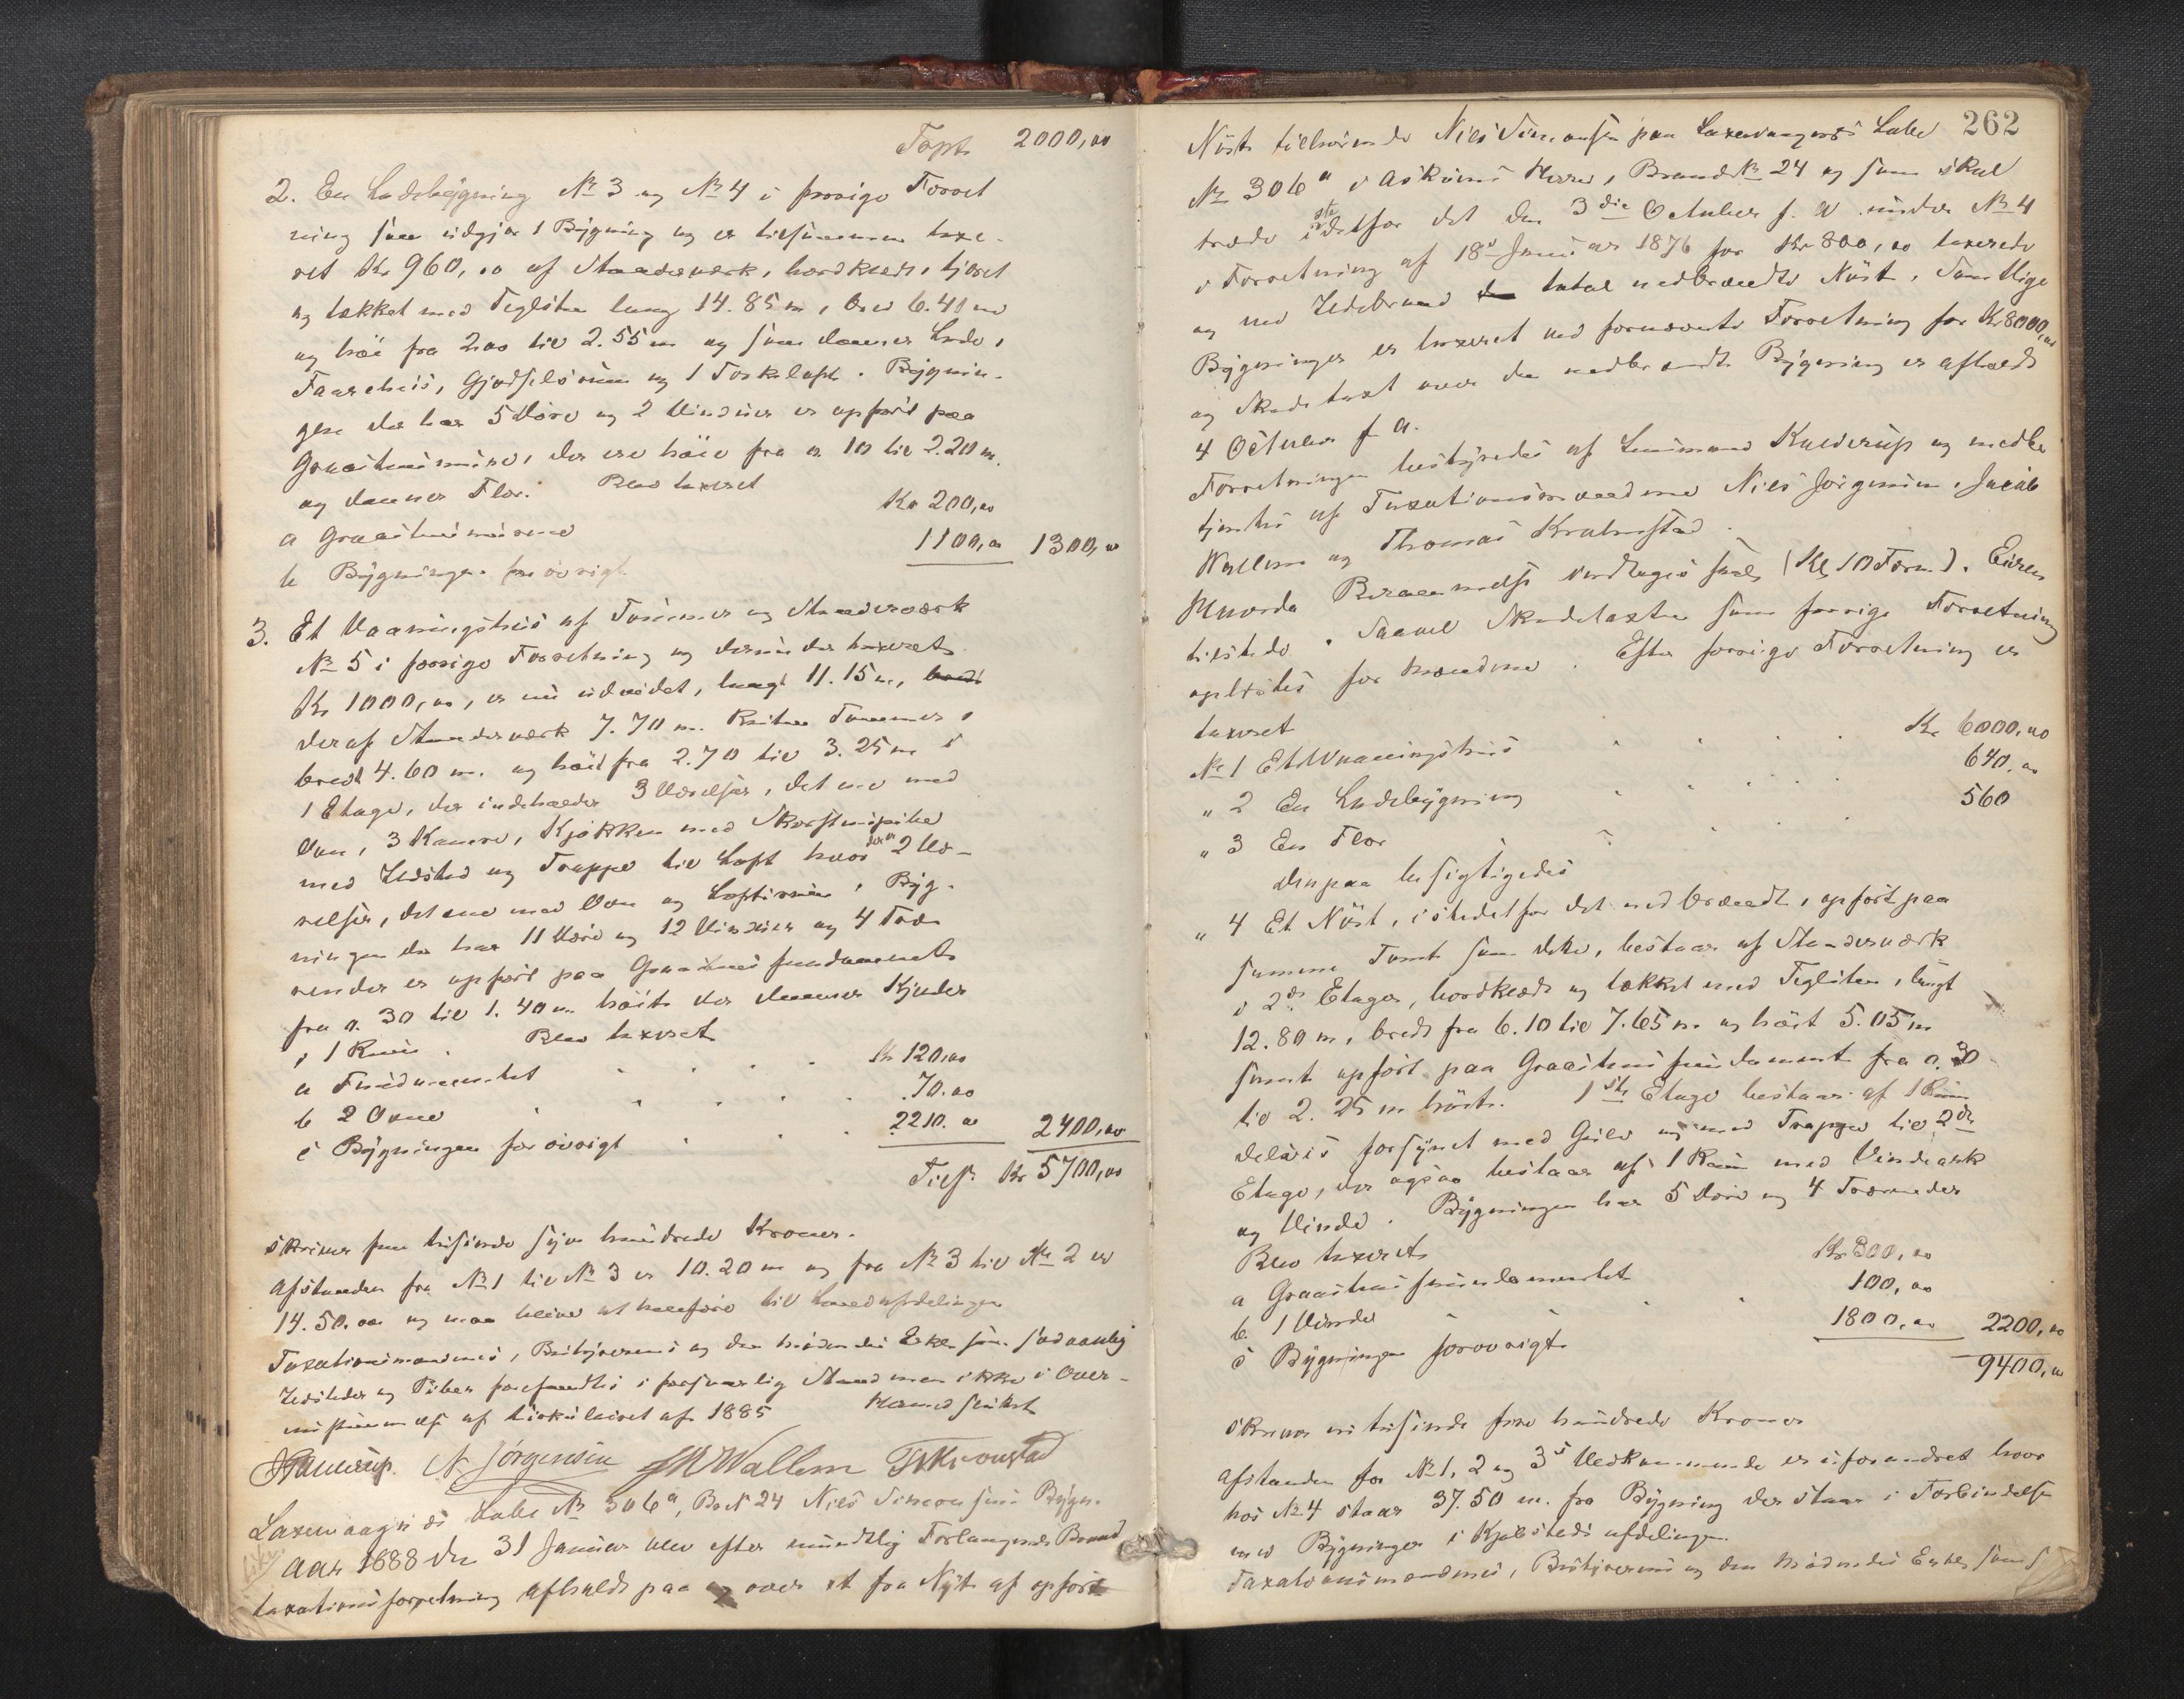 Tspt. 2000,00
2. En Ladebygning No 3 og No 4 i forrige Forret
ning som udgjør 1 Bygning og er tilsammen taxe-
ret Kr 960,00 af Standerværk, bordklædt, tjæret
og tækket med Teglsten lang 14.85 m, bred 6.40 m
og høi fra 2.00 til 2.55 m og som danner Lade,
Faarehuis, Gjødselsrum og 1 Torkeloft. Bygnin-
gen der har 5 Døre og 2 Vinduer er opført paa
Graastensmure, der ere høie fra 0.10 til 2.20 m.
og danner Flor. Blev taxeret
a Graastensmurene Kr 200,00
b Bygningen forøvrigt 1100,00 1300,00
3. Et Vaaningshuis af Tømmer og Standerværk
No 5 i forrige Forretning og derunder taxeret
Kr 1000,00, er nu udvidet, langt 11.15 m,
deraf Standerværk 7.70 m. Resten Tømmer,
bredt 4.60 m. og høit fra 2.70 til 3.25 m i
1 Etage, der indeholder 3 Værelser, det ene med
Ovn, 3 Kamre, Kjøkken med Skorstenspibe
med Ildsted og Trappe til Loft hvor der er 2 Væ-
relser, det ene med Ovn og Loftsrum. Byg-
ningen der har 11 Døre og 12 Vinduer og 4 Træ-
render er opført paa Graastensfundament
fra 0.30 til 1.40 m høit der danner Kjelder
i 1 Rum. Blev taxeret
a Fundamentet Kr 120,00
b 2 Ovne 70.00
c Bygningen forøvrigt 2210.00 2400,00
Tils. Kr 5700,00
skriver fem tusinde syv hundrede Kroner.
Afstanden fra No 1 til No 3 er 10.20 m og fra No 3 til No 2 er
14.50. og maa blive at henføre til Landafdelingen
Taxationsmændenes, Bestyrerens og den mødendes Erklæ som sædvanlig
Ildsteder og Piber forefandtes i forsvarlig Stand men ikke i Over-
ensstemmelse af Cirkulæret af 1885 Hermed sluttet
Kulderup. N. Jørgensen J W Wallem T Kronstad
Laxevaagnæs Labr No 306a, Br N 24 Niels Simonsens Bygn.
Aar 1888 den 31 Januar blev efter mundtlig Forlangende Brand
taxationsforretning afholdt paa og over et fra Nyt af opført
262
Nøst tilhørende Niels Simonsen paa Laxevaagnæs Labr
No 306a i Askøens Herred, Brand No 24 og som skal
træde istedetfor det den 3die October f. A. under No 4
i Forretning af 18de Januar 1876 for Kr 800,00 taxerede
og ved Ildebrand total nedbrændte Nøst. Samtlige
Bygninger er taxeret ved fornævnte Forretning for Kr 8000,00
og Skadetaxt over den nedbrændte Bygning er afholdt
4 October f. A.
Forretningen bestyredes af Lensmand Kulderup og medbe
tjentes af Taxationsmændene Niels Jørgensen, Jacob
Wallem og Thomas Kronstad.
Hvorda Berammelse vedtages (Kl 10 Form.). Eieren
tilstede. Saavel Skadetaxten som forrige Forretning
oplæstes for Mændene. Efter forrige Forretning er
taxeret
No 1 Et Vaaningshuis Kr 6000,00
" 2 En Ladebygning 640,00
" 3 En Flor 560
Derpaa besigtigedes
" 4 Et Nøst, istedetfor det nedbrændte, opført paa
samme Tomt som dette, bestaar af Standerværk
i 2de Etager, bordklædt og tækket med Teglsten, langt
12.80 m, bredt fra 6.10 til 7.65 m og høit 5.05 m
samt opført paa Graastensfundament fra 0.30
til 2.25 m høit. 1ste Etage bestaar af 1 Rum
delvis forsynet med Gulv og med Trappe til 2de
Etage, der ogsaa bestaar af 1 Rum med Vindeark
og Vinde. Bygningen har 5 Døre og 4 Trærender
Blev taxeret
a Graastensfundamentet Kr 300,00
b 1 Vinde 100,00
c Bygningen forøvrigt 1800,00 2200,00
9400,00
skriver ni tusinde fire hundrede Kroner
Afstanden for No 1, 2 og 3's Vedkommende er uforandret hvor
hos No 4 staar 37.50 m. fra Bygning der staar i Forbindelse
med Bygninger i Kjøbstadsafdelingen.
Taxationsmændenes, Bestyrerens og den mødendes Erklæ som s